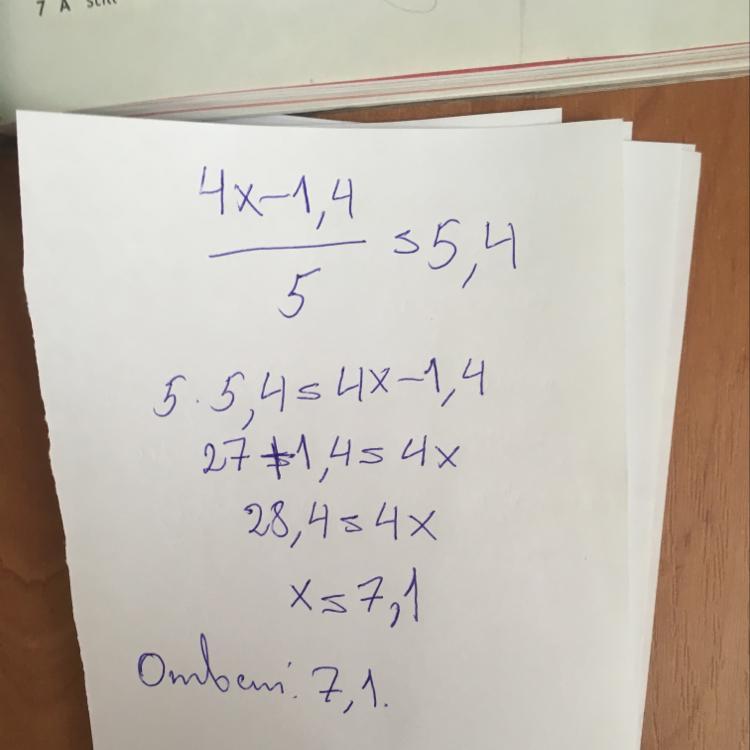 7 A
4x-1,4
5
= 5,4
5 · 5,4 = 4x-1,4
27+1,4 = 4x
28,4 = 4x
x = 7,1
Ответ: 7,1.